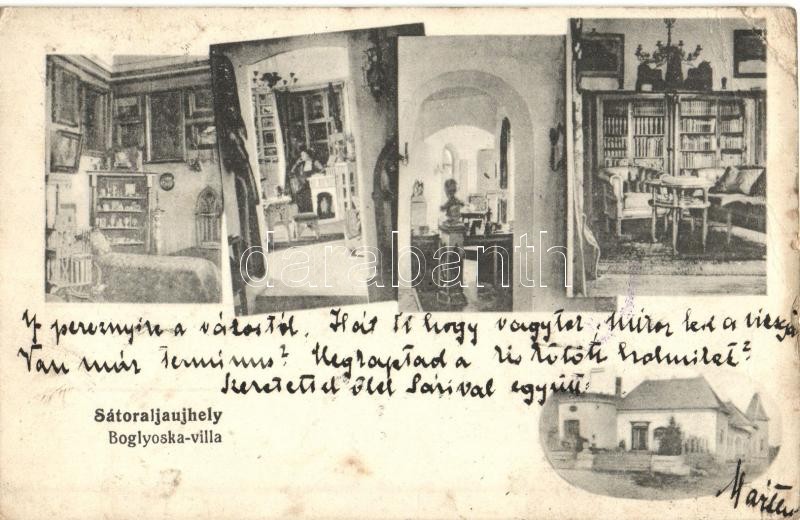 darabanth
4 percznyire a várostól. Hát Ti hogy vagytok. Mikor lesz a vizsga
Van már terminus? Megkaptad a kis kötött holmikat?
Szeretettel ölel Sárival együtt
Sátoraljaujhely
Boglyoska-villa